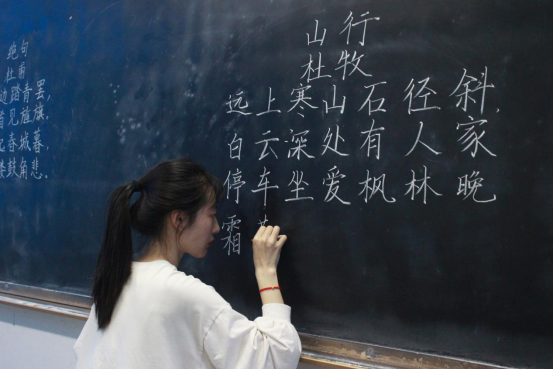 绝句
杜甫
边踏青罢,
首见旌旗。
起春城暮,
楼鼓角悲。
山行
杜牧
远上寒山石径斜,
白云深处有人家
停车坐爱枫林晚
霜